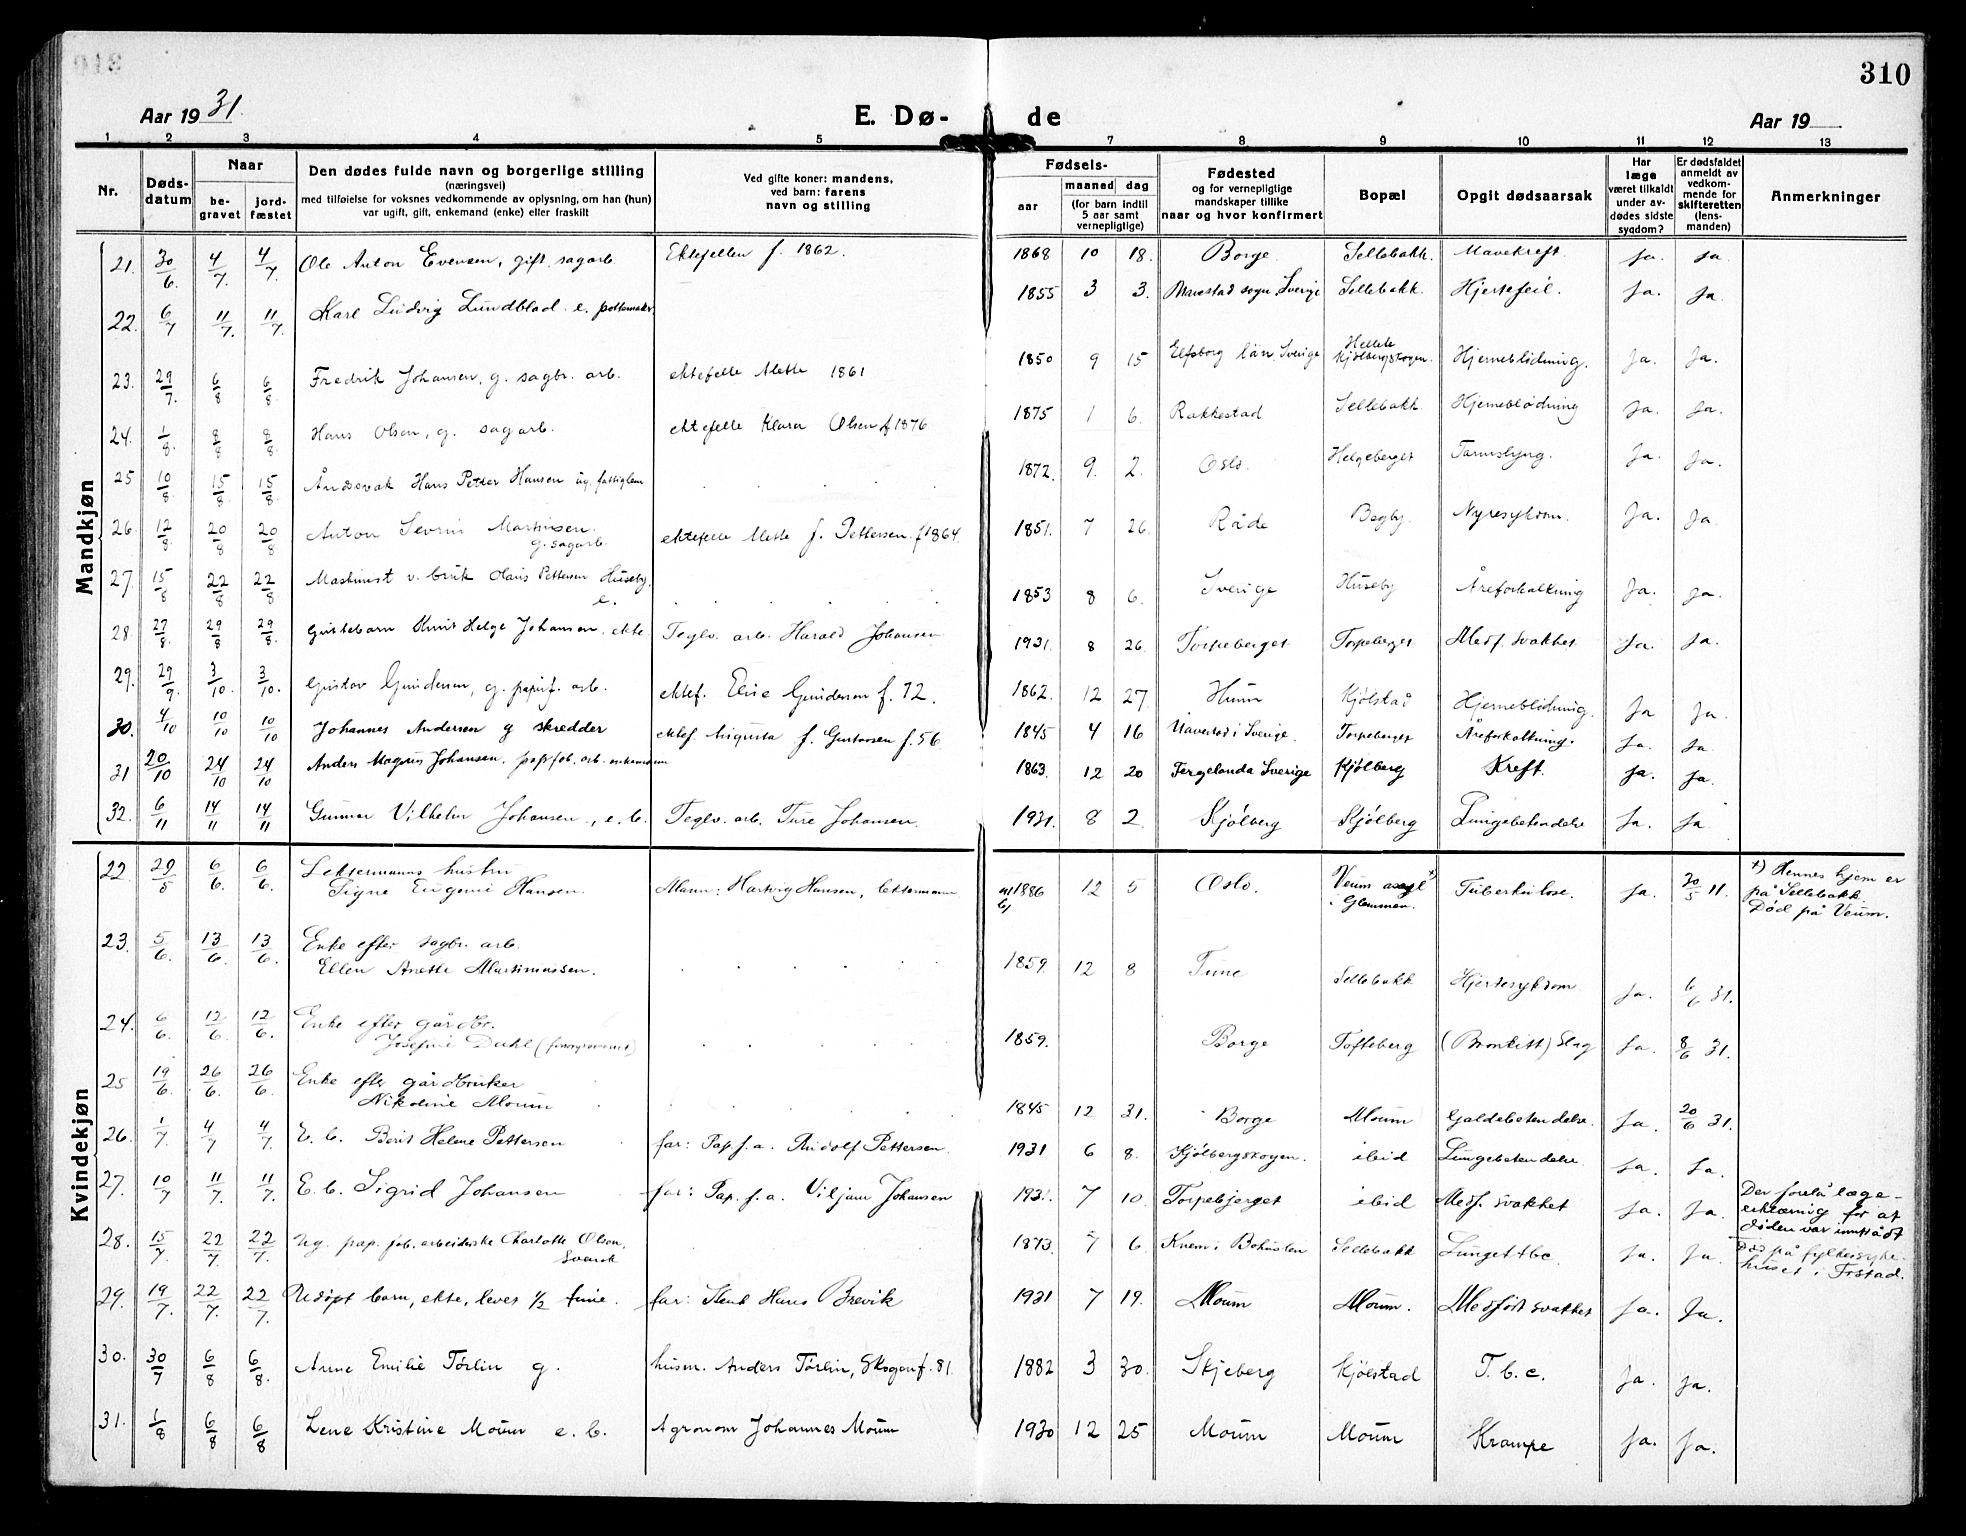 310
Aar 1931. E. Dø- de Aar 19
1 2 3 4 5 7 8 9 10 11 12 13
Nr. Dødsdatum Naar begravet jordfæstet
Den dødes fulde navn og borgerlige stilling
(næringsvei)
med tilføielse for voksnes vedkommende av oplysning, om han (hun)
var ugift, gift, enkemand (enke) eller fraskilt
Ved gifte koner: mandens,
ved barn: farens
navn og stilling
Fødsels-
aar maaned dag
(for barn indtil
5 aar samt
vernepligtige)
Fødested
og for vernepligtige
mandskaper tillike
naar og hvor konfirmert
Bopæl
Opgit dødsaarsak
Har
læge
været tilkaldt
under av-
dødes sidste
sygdom?
Er dødsfaldet
anmeldt av
vedkom-
mende for
skifteretten
(lens-
manden)
Anmerkninger
Mandkjøn
21. 30/6. 4/7. 4/7. Ole Anton Evensen, gift. sagarb. Ektefellen f. 1862. 1868 10 18. Borge. Sellebakk. Mavekreft Ja. Ja.
22. 6/7 11/7. 11/7. Karl Ludvig Lundblad. e. pottemaker 1855 3 3. sogn Sverige Sellebakk. Hjertefeil. Ja. Ja.
23. 29/7. 6/8 6/8 Fredrik Johansen, g. sagbr. arb. ektefelle Mette 1861 1850 9 15 Elfsborg län, Sverige Kjølbergskogen. Hjerneblødning. Ja. Ja.
24. 1/8. 8/8 8/8 Hans Olsen, g. sagarb. ektefelle Klara Olsen f 1876 1875 1 6. Rakkestad Sellebakk Hjerneblødning Ja. Ja.
25 10/8. 15/8. 15/8. Åndsvak Hans Petter Hansen ug. fattiglem 1872. 9. 2. Oslo. Helgeberget Tarmslyng. Ja. Ja.
26. 12/8. 20/8 20/8 Anton Sevrin Martinsen. g. sagarb. ektefelle Mette f. Pettersen. f 1864. 1851. 7 26. Råde Begby. Nyresykdom. Ja. Ja
27. 15/8 22/8 22/8 Maskinist v. bruk Hans Pettersen Huseby. e. 1853 8 6. Sverige Huseby Åreforkalkning Ja. Ja.
28 27/8. 29/8 29/8. Guttebarn Knut Helge Johansen. ekte. Teglv. arb. Harald Johansen 1931. 8 26. Torpeberget Torpeberget Medf. svakhet Ja. Ja.
29. 29/9. 3/10. 3/10. Gustav Gundersen, g. papirf. arb. ektef. Elise Gundersen f. 72. 1862. 12 27 Hunn Kjølstad Hjerneblødning. Ja Ja.
30. 4/10 10/10 10/10 Johannes Andersen g skredder ektef. Augusta f. Gustavsen f. 56 1845 4 16 i Sverige. Torpeberget Åreforkalkning. Ja. Ja
31 20/10 24/10 24/10 Anders Magnus Johansen. papfab. arb. enkemann 1863. 12 20 Fergelanda Sverige Kjølberg Kreft. Ja. Ja.
32. 6/11 14/11 14/11 Gunnar Vilhelm Johansen., e. b. Teglv. arb. Ture Johansen. 1931. 8 2. Kjølberg Kjølberg Lungebetendelse Ja. Ja
Kvindekjøn
22. 29/5 6/6. 6/6. Lektermanns hustru
Signe Eugenie Hansen. Mann: Hartvig Hansen, lektermann 1886 12 5 Oslo. Veum asyl i Glemmen. Tuberkulose. Ja. 30/5 11. 1) Hennes hjem er
på Sellebakk.
Død på Veum.
23. 5/6. 13/6. 13/6. Enke efter sagbr. arb.
Ellen Anette Martinussen. 1859. 12 8 Tune Sellebakk Hjertesykdom Ja. 6/6 31.
24. 6/6. 12/6. 12/6. Enke efter gårdbr.
Josefine Dahl 1859. Borge Tofteberg (Bronkitt) Slag Ja. 8/6 31.
25 19/6. 26/6. 26/6. Enke eft. gårdbruker
Nikoline Moum 1845 12 31. Borge Moum Galdebetendelse. Ja. 20/6 31.
26. 1/7. 4/7 4/7. E. b. Berit Helene Pettersen far: Pap. f. a. Rudolf Pettersen. 1931 6 8. Kjølbergskogen. ibid Lungebetendelse. Ja. Ja.
27. 10/7 11/7. 11/7. E. b. Sigrid Johansen far: Pap. f. a. Viljam Johansen 1931. 7 10. Torpebjerget ibid Medf. svakhet Ja. Ja. Der forelå læge-
erklæring for at
døden var inntrådt
28. 15/7 22/7. 22/7. Ug. pap. fab. arbeiderske Charlotte Olsen,
Svensk 1873. 7 6. Knem i Bohuslen Sellebakk Lunget tbc. Ja. Ja. Død på fylkessyke-
huset i Frstad.
29. 19/7. 22/7. 22/7. Udøpt barn, ekte, levet 1/2 time. far: Hans Brevik 1931 7 19. Moum Moum. Medfødt svakhet Ja. Ja.
30. 30/7 6/8 6/8. Anne Emilie Tørlin g. husm. Anders Tørlin, f. 81. 1882 3 30. Skjeberg Kjølstad T. b. c. Ja. Ja.
31. 1/8 6/8 6/8 Lene Kristine Moum e. b. Agronom Johannes Moum 1930 12 25 Moum Moum Krampe Ja. Ja.